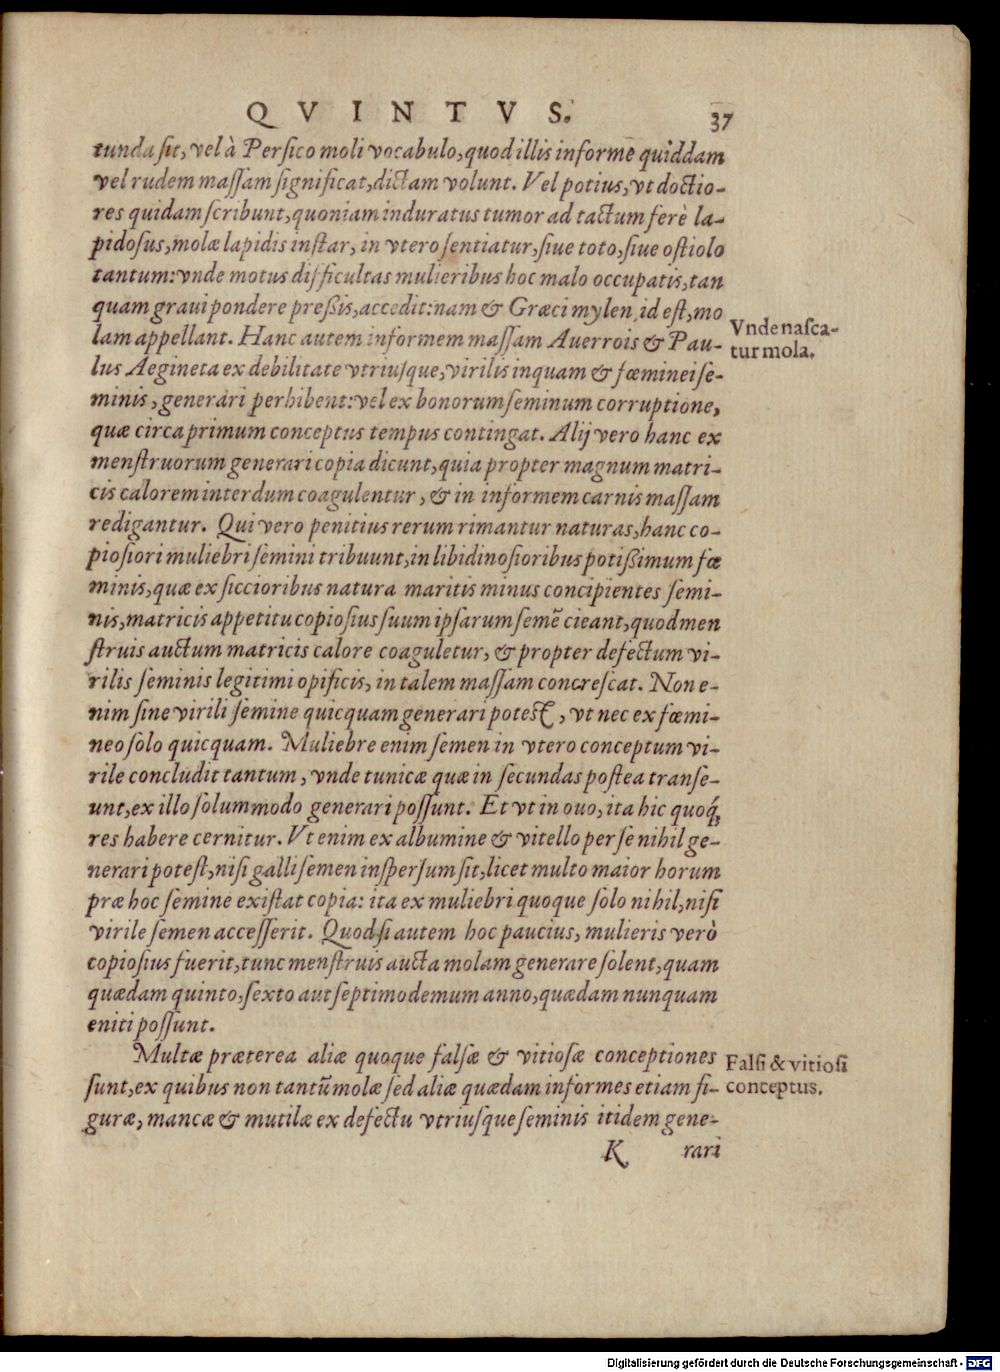 QVINTVS. 37
tunda sit, vel à Persico moli vocabulo, quod illis informe quiddam
vel rudem massam significat, dictam volunt. Vel potius, vt doctio-
res quidam scribunt, quoniam induratus tumor ad tactum ferè la-
pidosus, molæ lapidis instar, in vtero sentiatur, siue toto, siue ostiolo
tantum: vnde motus difficultas mulieribus hoc malo occupatis, tan
quam graui pondere preßis, accedit: nam & Græci mylen, id est, mo
lam appellant. Hanc autem informem massam Auerrois & Pau-
Vnde nasca-
tur mola.
lus Aegineta ex debilitate vtriusque, virilis inquam & fœminei se-
minis, generari perhibent: vel ex bonorum seminum corruptione,
quæ circa primum conceptus tempus contingat. Alij vero hanc ex
menstruorum generari copia dicunt, quia propter magnum matri-
cis calorem interdum coagulentur, & in informem carnis massam
redigantur. Qui vero penitius rerum rimantur naturas, hanc co-
piosiori muliebri semini tribuunt, in libidinosioribus potißimum fœ
minis, quæ ex siccioribus natura maritis minus concipientes semi-
nis, matricis appetitu copiosius suum ipsarum semē cieant, quod men
struis auctum matricis calore coaguletur, & propter defectum vi-
rilis seminis legitimi opificis, in talem massam concrescat. Non e-
nim sine virili semine quicquam generari potest, vt nec ex fœmi-
neo solo quicquam. Muliebre enim semen in vtero conceptum vi-
rile concludit tantum, vnde tunicæ quæ in secundas postea transe-
unt, ex illo solummodo generari possunt. Et vt in ouo, ita hic quoq́;
res habere cernitur. Vt enim ex albumine & vitello per se nihil ge-
nerari potest, nisi galli semen inspersum sit, licet multo maior horum
præ hoc semine existat copia: ita ex muliebri quoque solo nihil, nisi
virile semen accesserit. Quod si autem hoc paucius, mulieris verò
copiosius fuerit, tunc menstruis aucta molam generare solent, quam
quædam quinto, sexto aut septimo demum anno, quædam nunquam
eniti possunt.
Multæ præterea aliæ quoque falsæ & vitiosæ conceptiones
Falsi & vitiosi
conceptus.
sunt, ex quibus non tantū molæ sed aliæ quædam informes etiam fi-
guræ, mancæ & mutilæ ex defectu vtriusque seminis itidem gene-
K rari
Digitalisierung gefördert durch die Deutsche Forschungsgemeinschaft - DFG